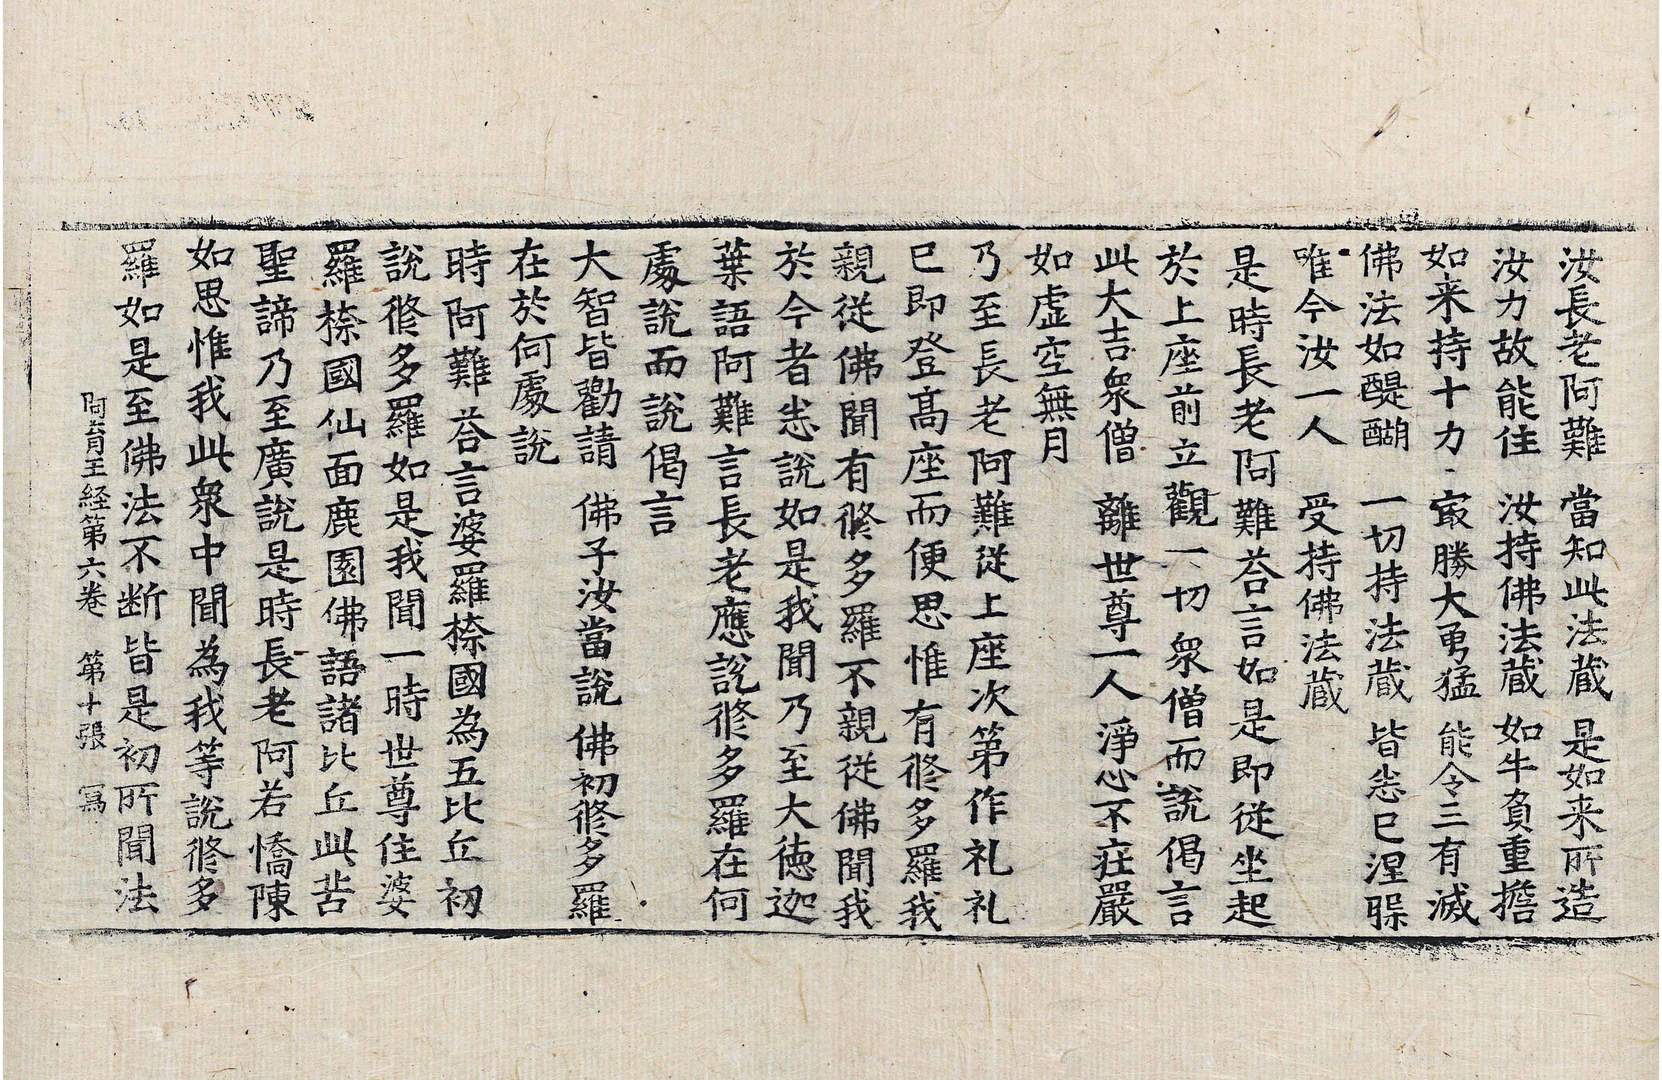 汝長老阿難　當知此法蔵　是如来所造
汝力故能住　汝持佛法蔵　如牛負重擔
如来持十力　㝡勝大勇猛　能令三有滅
佛法如醍醐　一切持法蔵　皆悉已涅槃
唯今汝一人　受持佛法蔵
是時長老阿難荅言如是即従坐起
於上座前立觀一切衆僧而說偈言
此大吉衆僧　離世尊一人　淨心不莊嚴
如虛空無月
乃至長老阿難従上座次第作礼礼
已即登髙座而便思惟有修多羅我
親従佛聞有修多羅不親従佛聞我
於今者悉說如是我聞乃至大徳迦
葉語阿難言長老應說修多羅在何
處說而說偈言
大智皆勸請　佛子汝當說　佛初修多羅
在於何處說
時阿難荅言婆羅㮈國為五比丘初
說修多羅如是我聞一時世尊住婆
羅㮈國仙面鹿園佛語諸比丘此苦
聖諦乃至廣說是時長老阿若憍陳
如思惟我此衆中聞為我等說修多
羅如是至佛法不断皆是初所聞法
阿育王経第六卷　第十張　寫